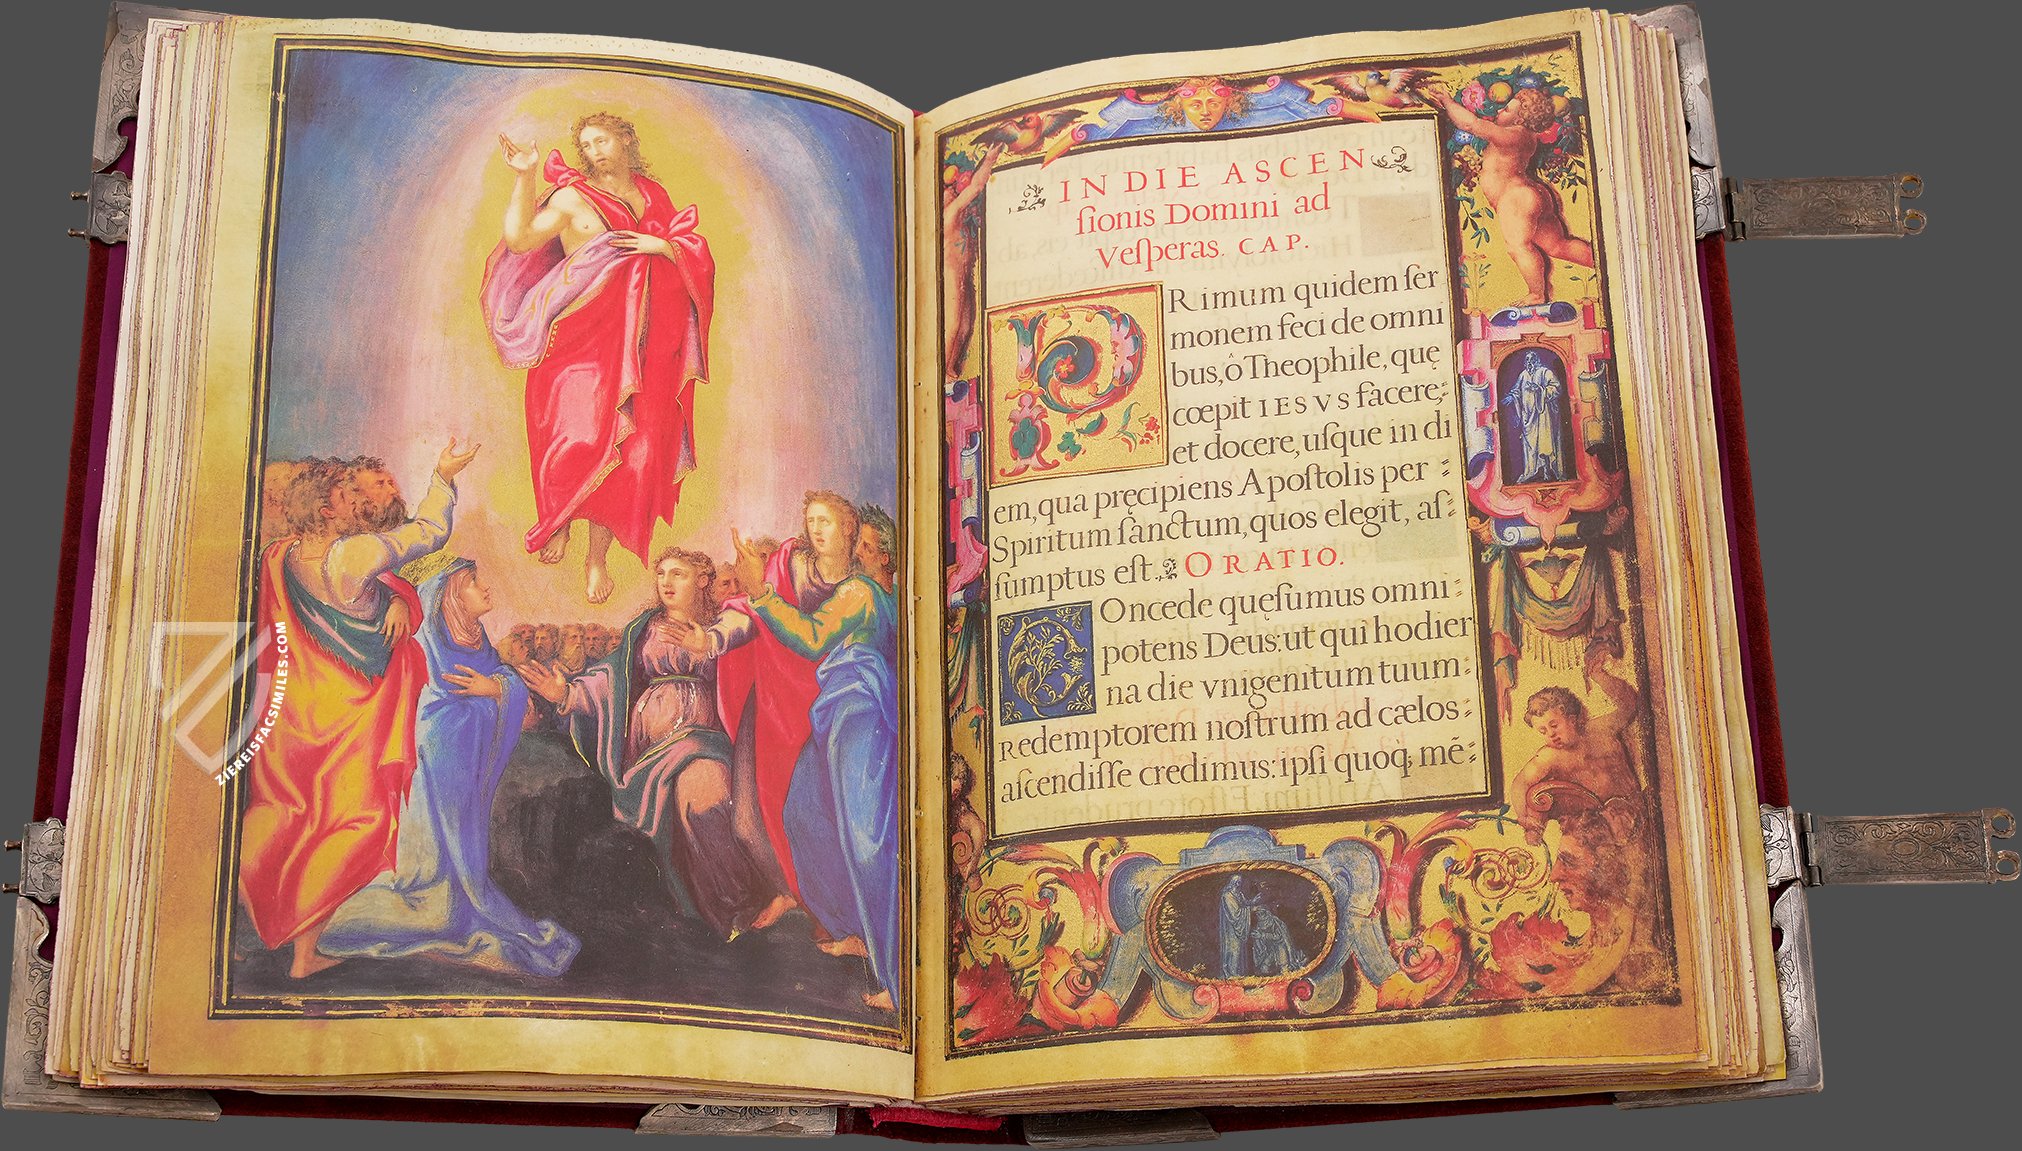 ZIEREISFACSIMILES.COM
86
IN DIE ASCEN
ſionis Domini ad
Veſperas. CAP.
PRimum quidem ſer
monem feci de omni
bus, ô Theophile, quę
cœpit IESVS facere,
et docere, uſque in di
em, qua pręcipiens Apoſtolis per
Spiritum ſanctum, quos elegit, aſ
ſumptus eſt. ORATIO.
COncede quęſumus omni
potens Deus: ut qui hodier
na die vnigenitum tuum
Redemptorem noſtrum ad cælos
aſcendiſſe credimus: ipſi quoq; mẽ